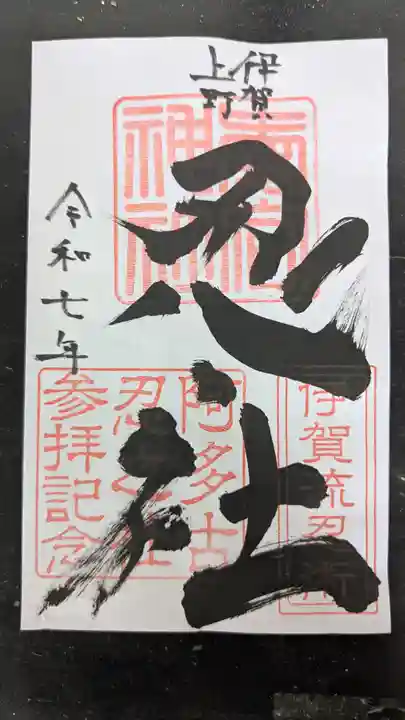 伊賀
上野
忍社
令和七年
阿多古
忍之社
参拝記念
伊賀流忍術